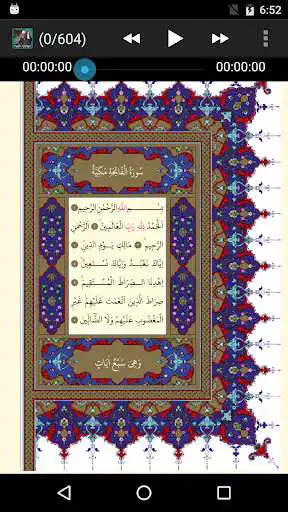 6:52
(0/604)
00:00:00 00:00:00
سُورَةُ الْفَاتِحَةِ مَكِّيَّةٌ
بِسْمِ اللهِ الرَّحْمٰنِ الرَّحِيمِ
اَلْحَمْدُ لِلّٰهِ رَبِّ الْعَالَمِينَ اَلرَّحْمٰنِ
الرَّحِيمِ مَالِكِ يَوْمِ الدِّينِ
اِيَّاكَ نَعْبُدُ وَاِيَّاكَ نَسْتَعِينُ
اِهْدِنَا الصِّرَاطَ الْمُسْتَقِيمَ
صِرَاطَ الَّذِينَ اَنْعَمْتَ عَلَيْهِمْ غَيْرِ
الْمَغْضُوبِ عَلَيْهِمْ وَلَا الضَّالِّينَ
وَهِيَ سَبْعُ اٰيَاتٍ